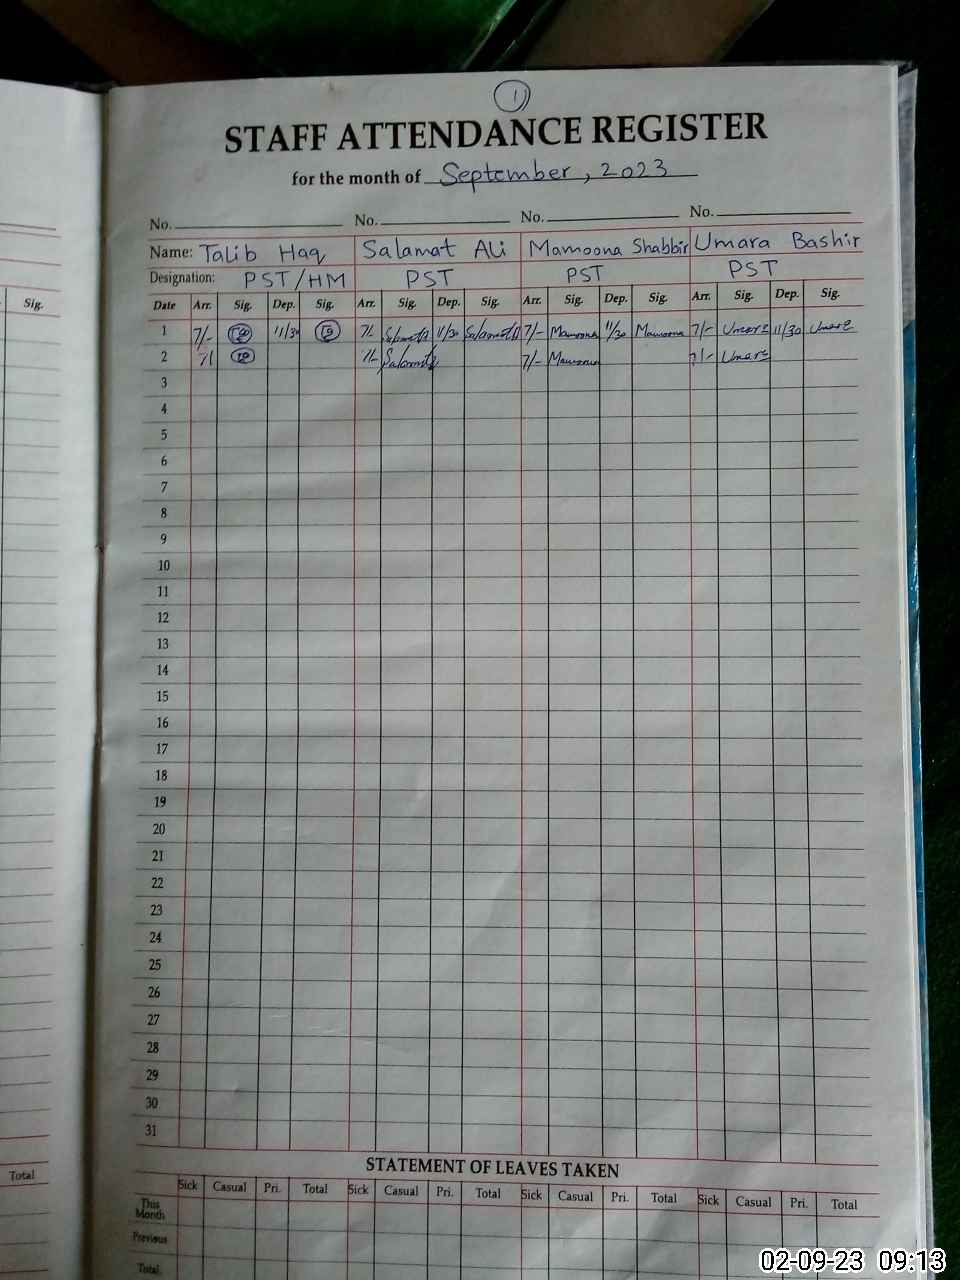 1
STAFF ATTENDANCE REGISTER
for the month of September, 2023
No. No. No. No.
Name: Talib Haq Salamat Ali Mamoona Shabbir Umara Bashir
Designation: PST/HM PST PST PST
Sig. Date Arr. Sig. Dep. Sig. Arr. Sig. Dep. Sig. Arr. Sig. Dep. Sig. Arr. Sig. Dep. Sig.
1 7/- 11/30 7/- 11/30 Salamat 7/- Mamoona 11/30 Mamoona 7/- Umara 11/30 Umara
2 7/- 7/- Salamat 7/- Mamoona 7/- Umara
3
4
5
6
7
8
9
10
11
12
13
14
15
16
17
18
19
20
21
22
23
24
25
26
27
28
29
30
31
STATEMENT OF LEAVES TAKEN
Total Sick Casual Pri. Total Sick Casual Pri. Total Sick Casual Pri. Total Sick Casual Pri. Total
This Month
Previous
Total
02-09-23 09:13